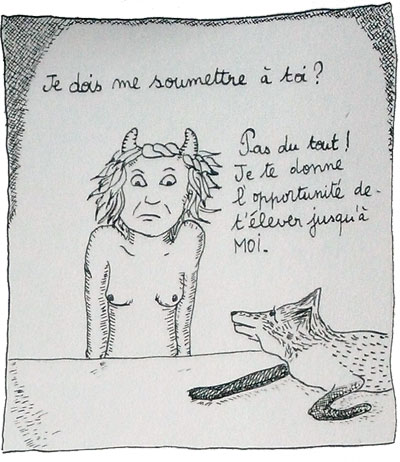 Je dois me soumettre à toi ?
Pas du tout !
Je te donne
l'opportunité de
t'élever jusqu'à
MOI.